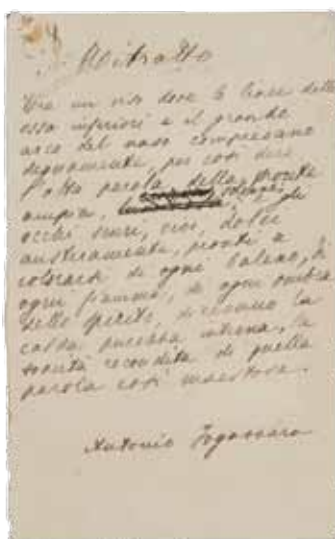 Ritratto
in un viso dove le linee delle
ossa inferiori e il grande
arco del naso compievano
degnamente, per così dire
l'alta parola della fronte
ampia, gli
occhi scuri, vivi, dolci
austeramente, pronti a
colorarsi di ogni baleno, di
ogni fiamma, di ogni ombra
dello spirito, dicevano la
calda interna, la
bontà recondita di quella
parola così maestosa.
Antonio Fogazzaro